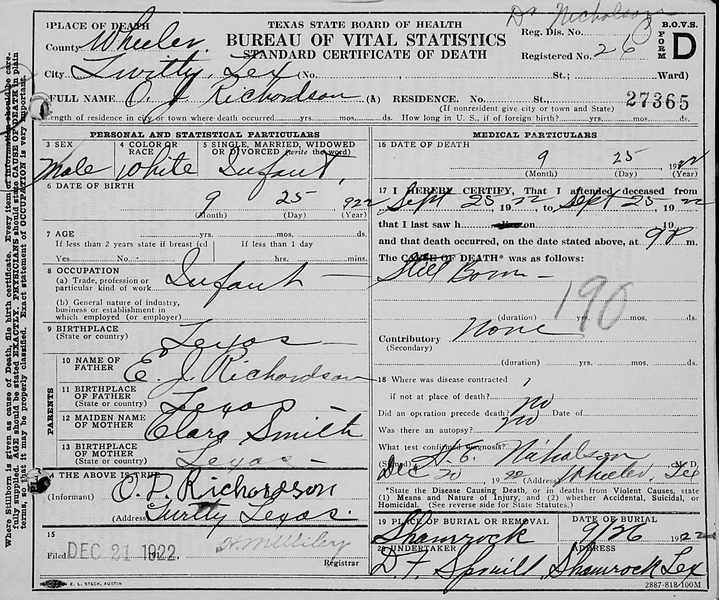 Dr Nicholson
1 PLACE OF DEATH
TEXAS STATE BOARD OF HEALTH
B.O.V.S.
County Wheeler.
BUREAU OF VITAL STATISTICS
Reg. Dis. No.
FORM D
STANDARD CERTIFICATE OF DEATH
Registered No. 26
City Twitty, Tex (No. St.; Ward)
FULL NAME O. J. Richardson (A) RESIDENCE. No. St., 27365
(If nonresident give city or town and State)
Length of residence in city or town where death occurred yrs. mos. ds. How long in U. S., if of foreign birth? yrs. mos. ds.
PERSONAL AND STATISTICAL PARTICULARS
3 SEX
Male
4 COLOR OR RACE
White
5 SINGLE, MARRIED, WIDOWED OR DIVORCED (write the word)
Infant,
6 DATE OF BIRTH
9 25 922
(Month) (Day) (Year)
7 AGE yrs. mos. ds.
If less than 2 years state if breast fed If less than 1 day
Yes No hrs. mins.
8 OCCUPATION
(a) Trade, profession or particular kind of work Infant
(b) General nature of industry, business or establishment in which employed (or employer)
9 BIRTHPLACE
(State or country) Texas
PARENTS
10 NAME OF FATHER E. J. Richardson
11 BIRTHPLACE OF FATHER
(State or country) Texas
12 MAIDEN NAME OF MOTHER Clara Smith
13 BIRTHPLACE OF MOTHER
(State or country) Texas
14 THE ABOVE IS TRUE
(Informant) O. P. Richardson
(Address) Twitty Texas.
15
Filed DEC 21 1922.
Registrar
MEDICAL PARTICULARS
16 DATE OF DEATH
9 25 1922
17 I HEREBY CERTIFY, That I attended deceased from
Sept 25 1922, to Sept 25 1922
that I last saw h alive on 19
and that death occurred, on the date stated above, at 9 P m.
The CAUSE OF DEATH* was as follows:
Still Born
190
(duration) yrs. mos. ds.
Contributory None
(Secondary)
(duration) yrs. mos. ds.
18 Where was disease contracted
if not at place of death?
Did an operation precede death? no Date of
Was there an autopsy? no
What test confirmed diagnosis?
(Signed) Nicholson M. D.
Dec 20 1922 (Address) Wheeler, Tex
*State the Disease Causing Death, or in deaths from Violent Causes, state
(1) Means and Nature of Injury, and (2) whether Accidental, Suicidal, or
Homicidal. (See reverse side for State Statutes.)
19 PLACE OF BURIAL OR REMOVAL DATE OF BURIAL
Shamrock 9/26 1922
20 UNDERTAKER ADDRESS
D. F. Spruill, Shamrock Tex
E. L. STECK, AUSTIN
2887-818-100M
Where Stillborn is given as cause of Death, file birth certificate. Every item of information should be care-
fully supplied. AGE should be stated EXACTLY. PHYSICIANS should state CAUSE OF DEATH in plain
terms, so that it may be properly classified. Exact statement of OCCUPATION is very important.